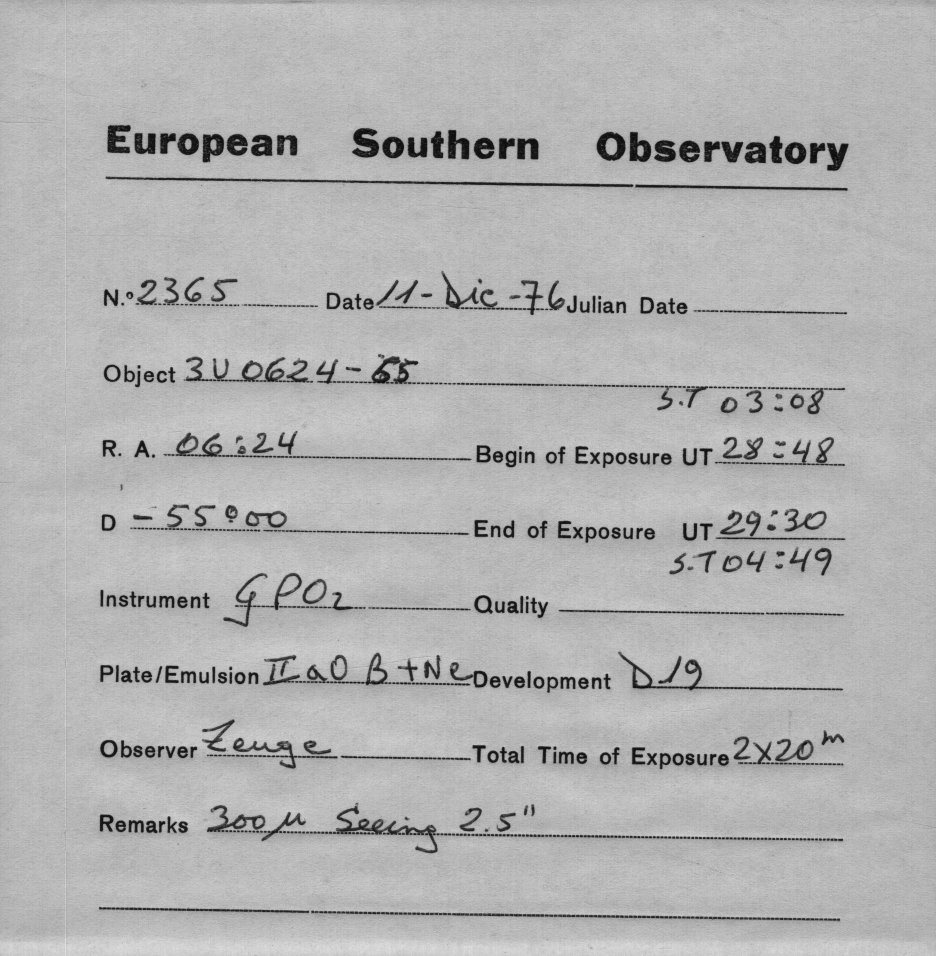 European Southern Observatory
N.º 2365 Date 11-Dic-76 Julian Date
Object 3U 0624-55
S.T 03:08
R. A. 06:24 Begin of Exposure UT 28:48
D -55°00 End of Exposure UT 29:30
S.T 04:49
Instrument GPO2 Quality
Plate/Emulsion IIaO B+Ne Development D19
Observer Zeuge Total Time of Exposure 2x20m
Remarks 300µ Seeing 2.5"